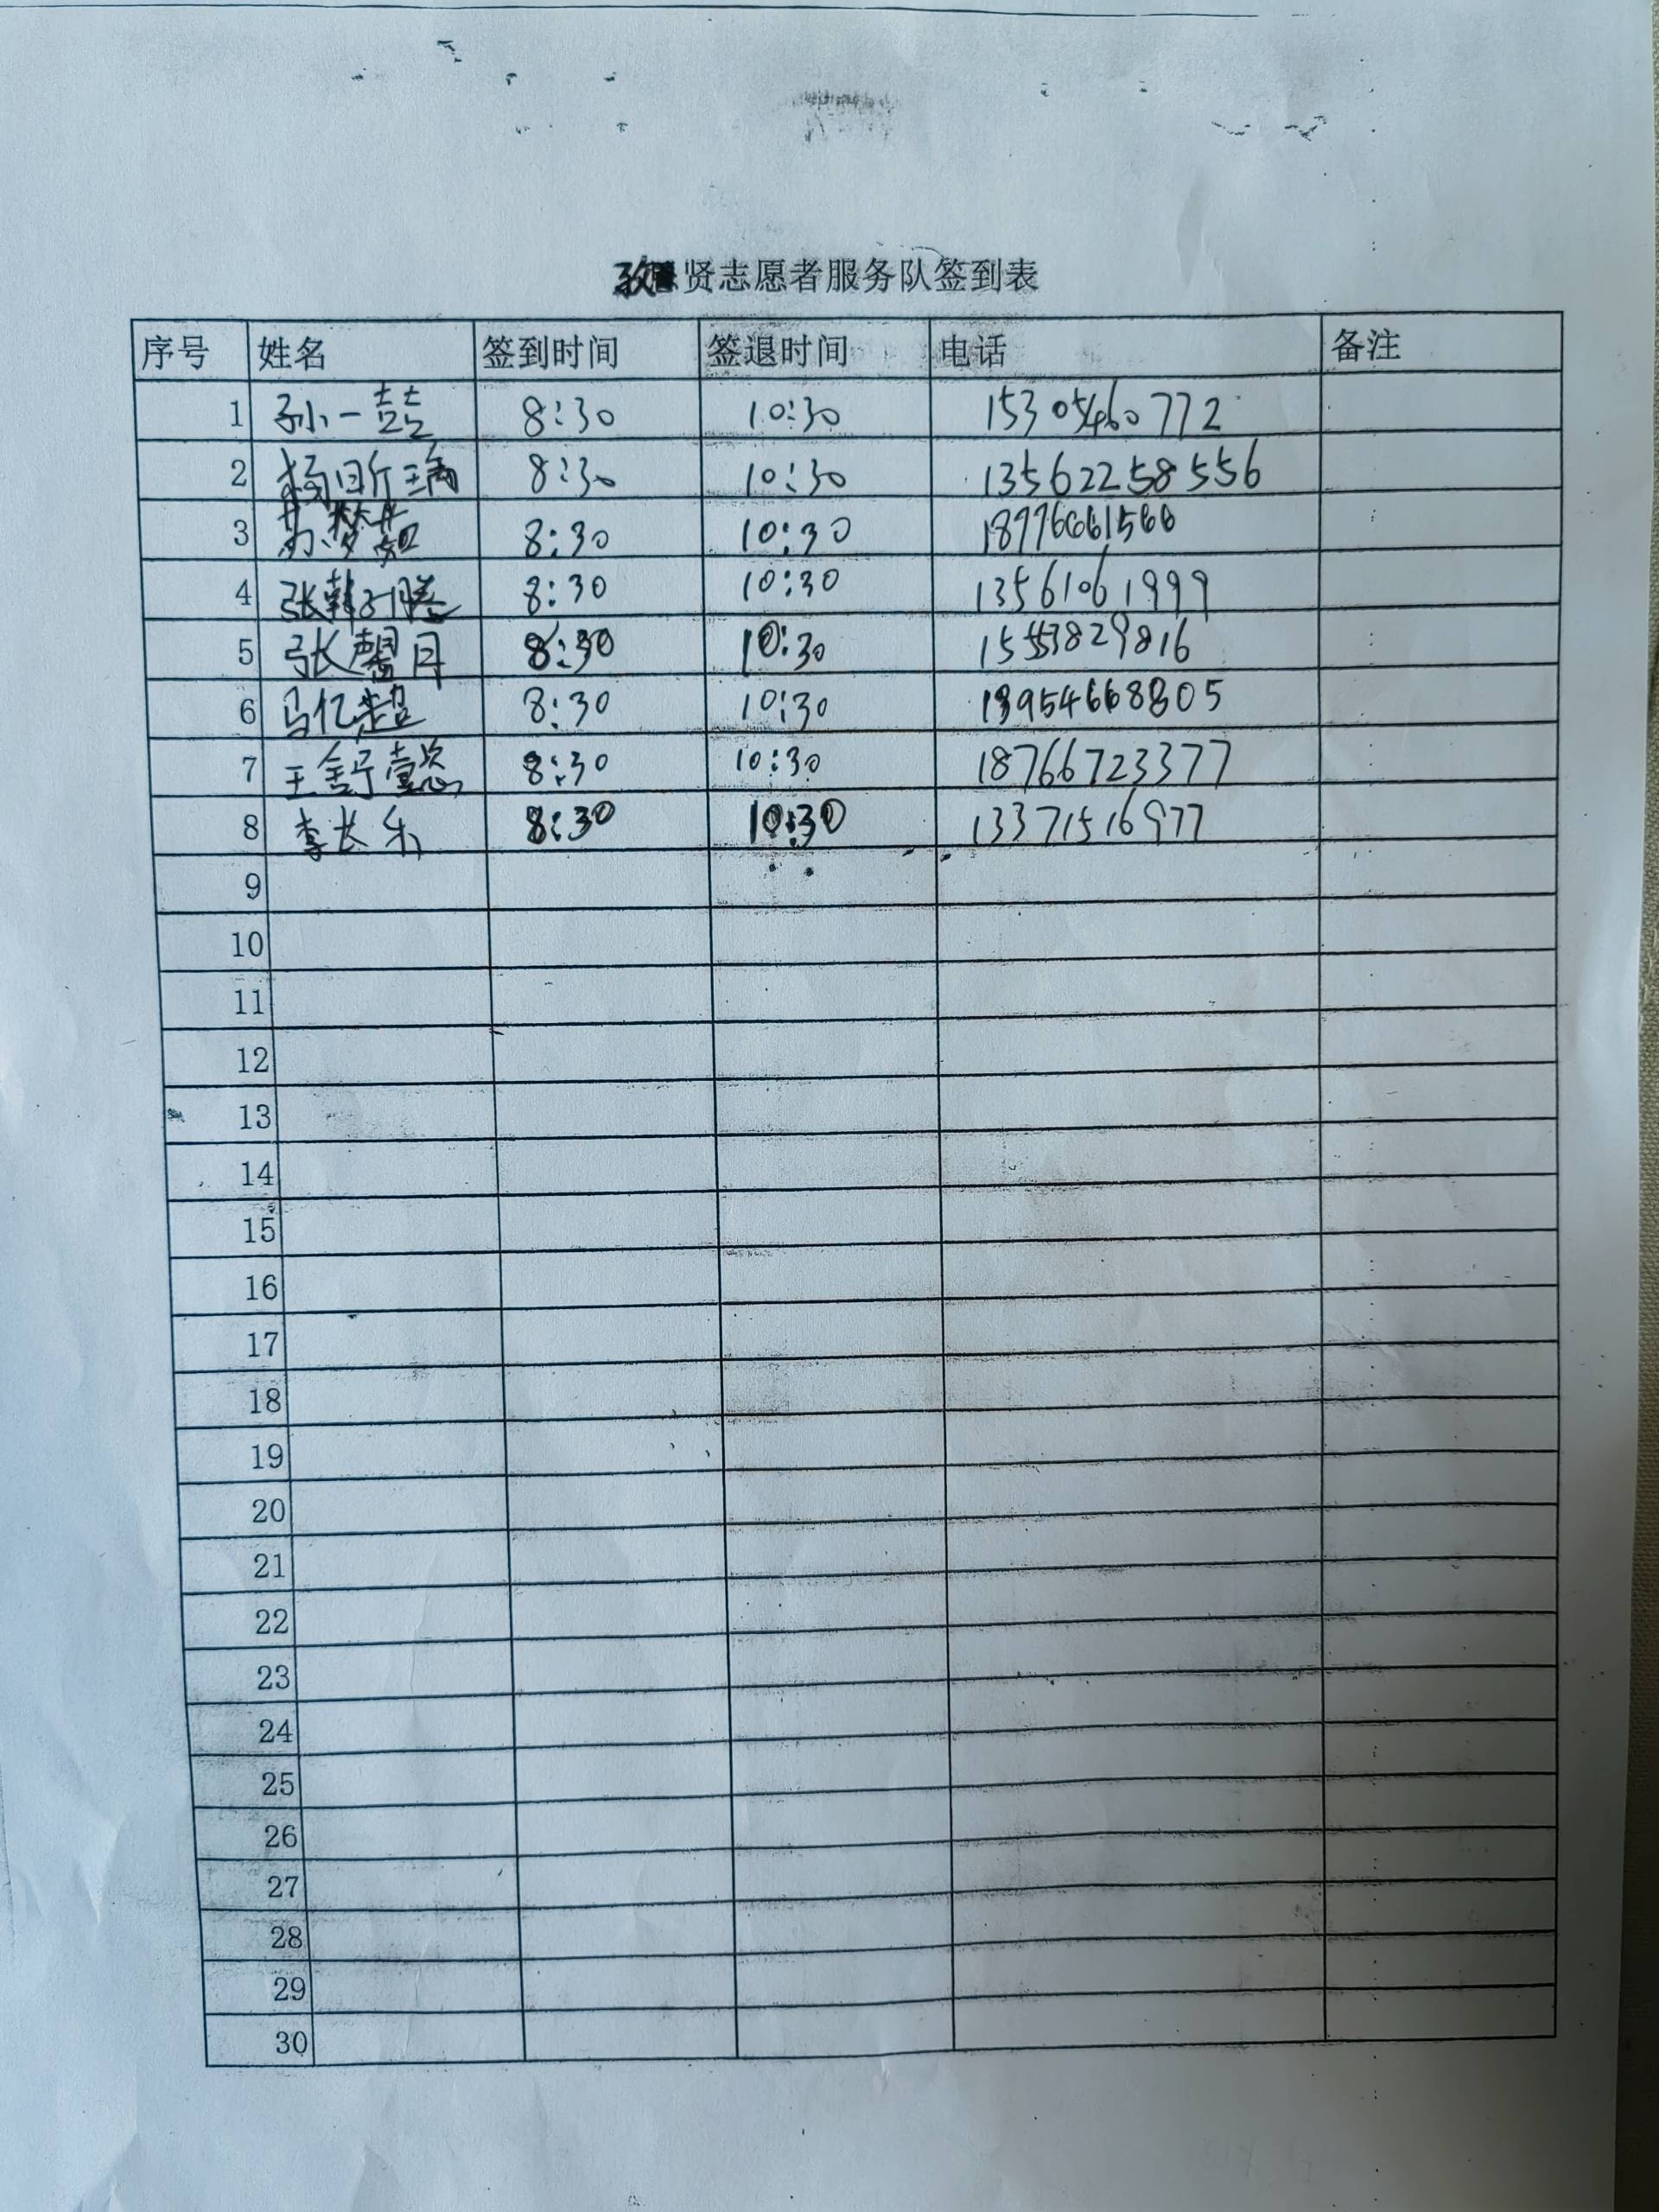 贤志愿者服务队签到表
序号 姓名 签到时间 签退时间 电话 备注
1 孙一喆 8:30 10:30 15305460772
2 杨昕瑞 8:30 10:30 13562258556
3 苏梦 8:30 10:30
4 张韩 8:30 10:30 13561061999
5 张馨月 8:30 10:30 15553829816
6 马亿超 8:30 10:30 13954668805
7 王舒壹 8:30 10:30 18766723377
8 李长乐 8:30 10:30 13371516977
9
10
11
12
13
14
15
16
17
18
19
20
21
22
23
24
25
26
27
28
29
30